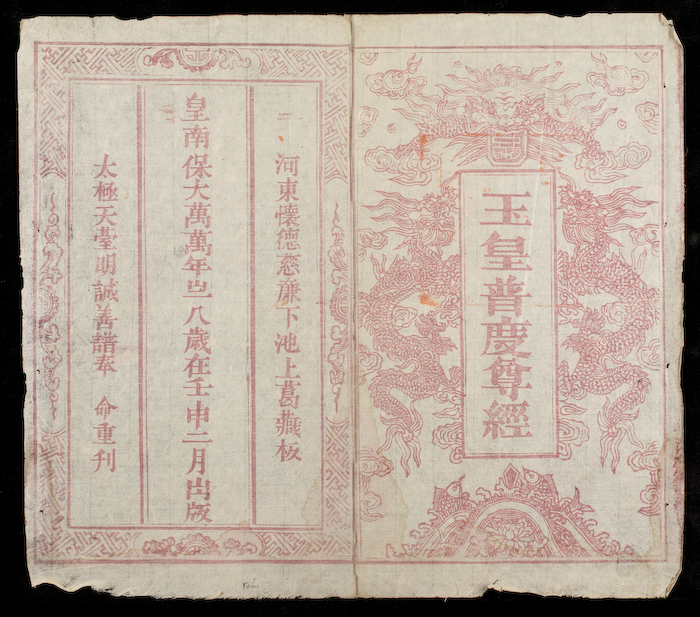 玉皇普慶尊經
河東懷德慈廉下池上葛板
皇南保大萬萬年㞢八歲在壬申二月出版
太極天臺明誠善譜奉 命重刊